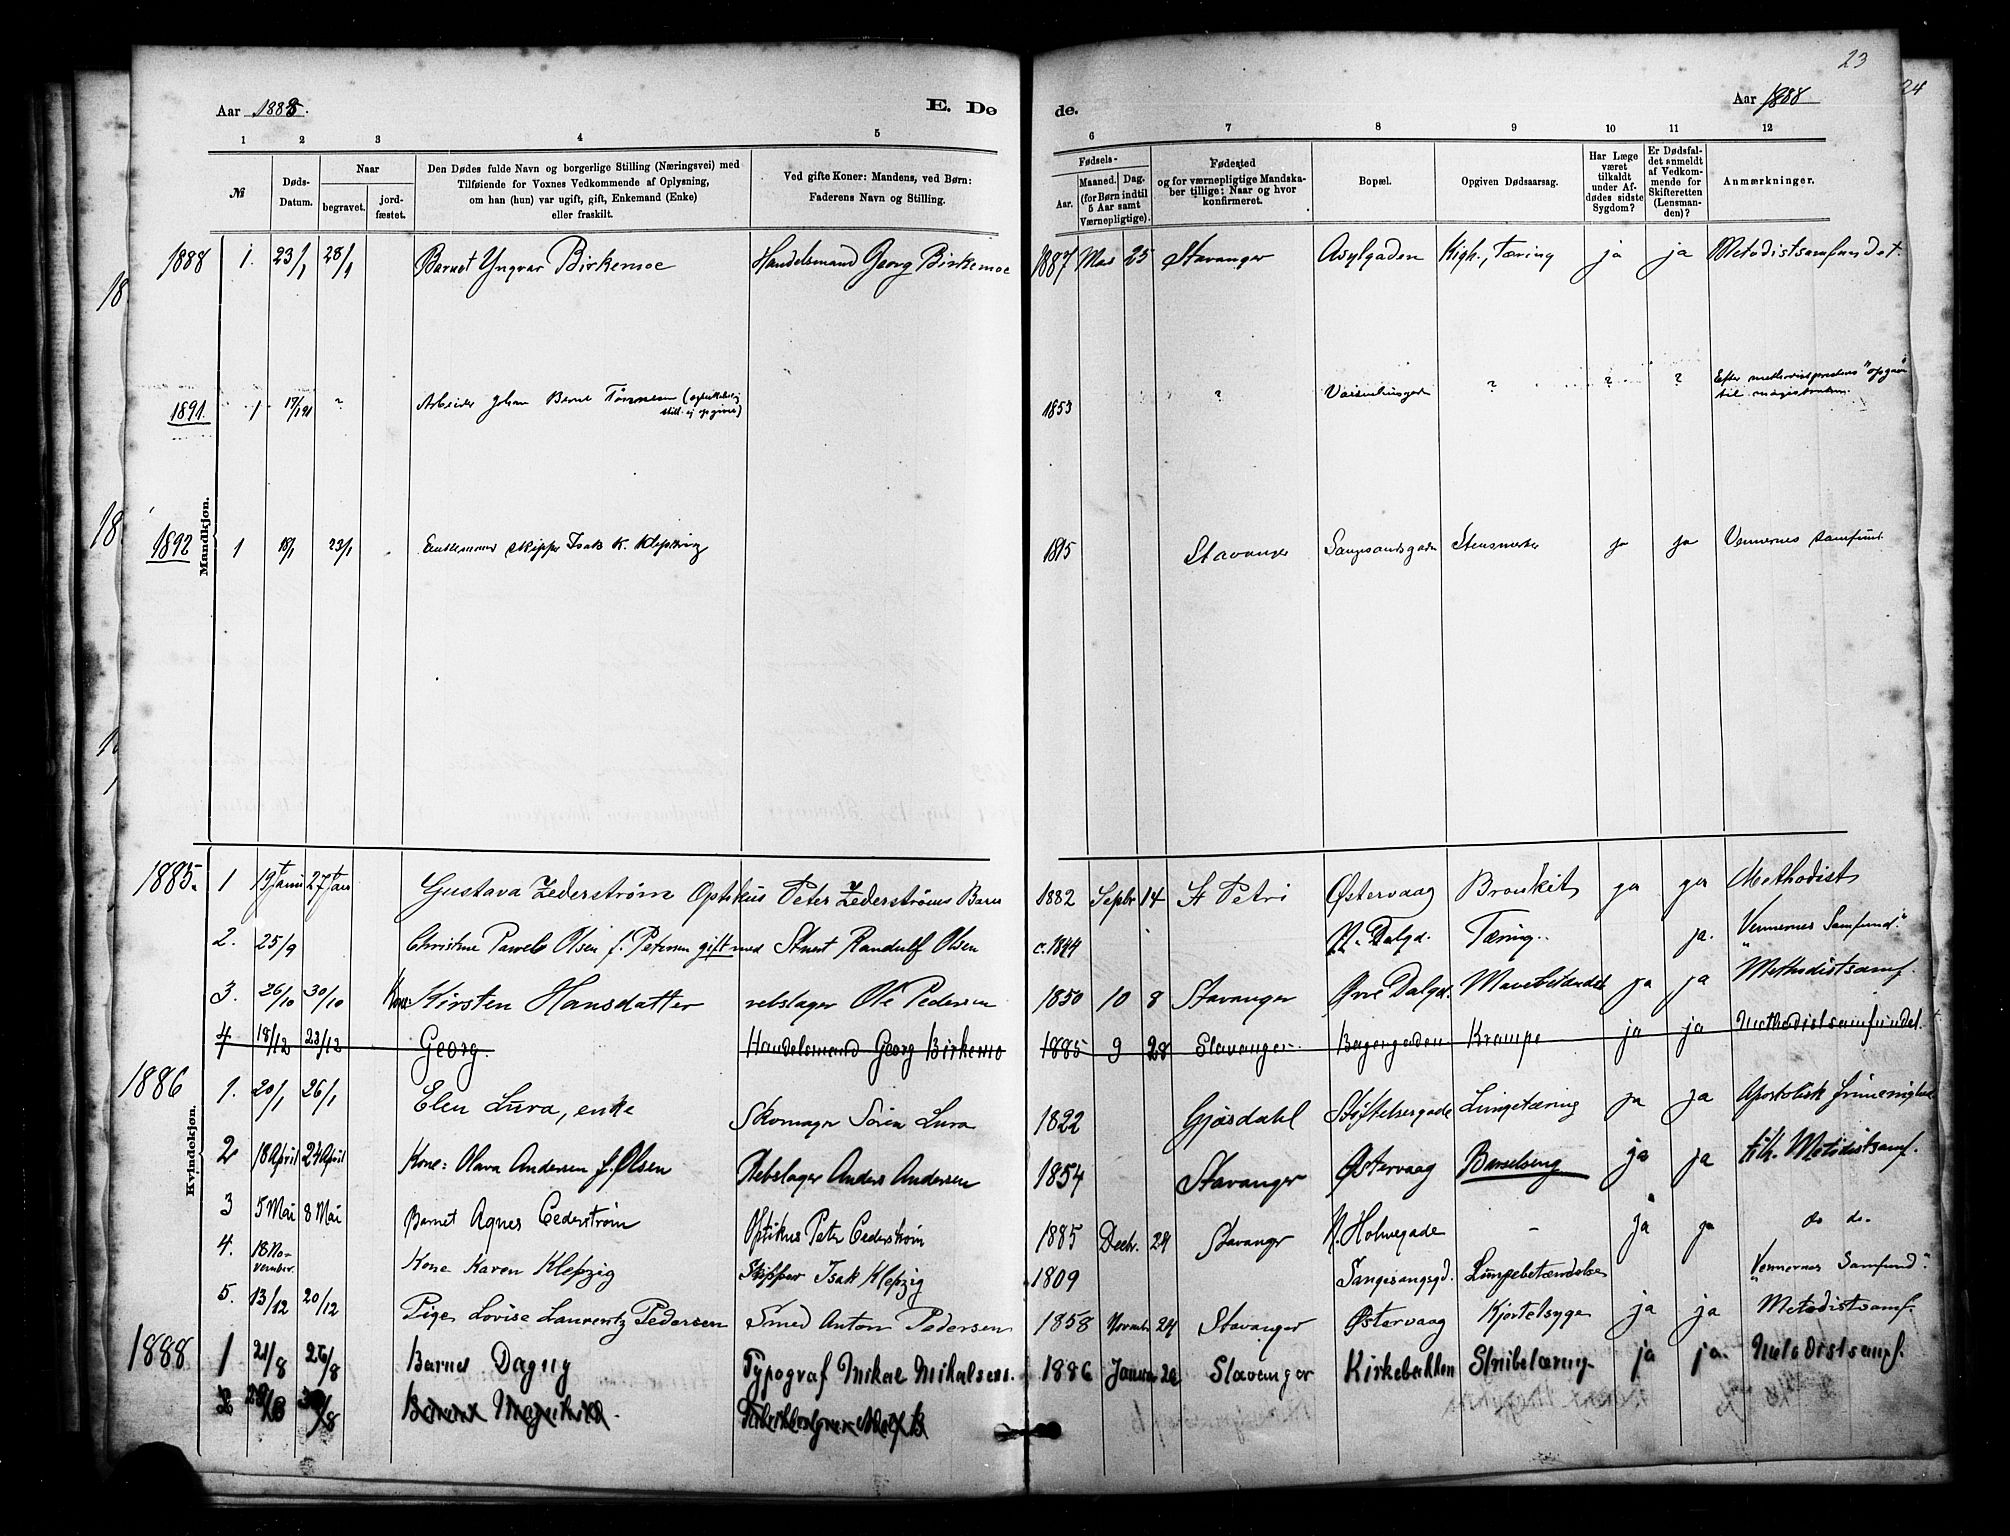 23
24
Aar 1888.
E. Dø
de.
Aar 1888
1 2 3 4 5 6 7 8 9 10 11 12
№
Døds-Datum.
Naar
begravet.
jord-fæstet.
Den Dødes fulde Navn og borgerlige Stilling (Næringsvei) med
Tilføiende for Voxnes Vedkommende af Oplysning,
om han (hun) var ugift, gift, Enkemand (Enke)
eller fraskilt.
Ved gifte Koner: Mandens, ved Børn:
Faderens Navn og Stilling.
Fødsels-
Aar.
Maaned. Dag.
(for Børn indtil
5 Aar samt
Værnepligtige).
Fødested
og for værnepligtige Mandska-
ber tillige: Naar og hvor
konfirmeret.
Bopæl.
Opgiven Dødsaarsag.
Har Læge
været
tilkaldt
under Af-
dødes sidste
Sygdom?
Er Dødsfal-
det anmeldt
af Vedkom-
mende for
Skifteretten
(Lensman-
den)?
Anmærkninger.
Mandkjøn.
1888 1. 23/1 28/1 Barnet Yngvar Birkemoe Handelsmand Georg Birkemoe 1887 Mai 25 Stavanger Asylgaden Kigh., Tæring ja ja Metodistsamfundet.
1891. 1 17/1 91 ? Arbeider Johan Bernt Tønnesen (
still. ej opgivet) 1853 ? ? ? ? Efter methodistprestens "opgave"
til magistraten
1892 1 18/1 23/1 Enkemand Skipper Isak K. Klepzig 1815 Stavanger Sangesandsgaden ja ja Vennernes samfund
Kvindekjøn.
1885. 1 19 Janu 27 Jan Gustava Zederstrøm Optikus Peter Zederstrøms Barn 1882 Septbr 14 St Petri Østervaag Bronkit ja ja Methodist
2. 25/9 Christine Pawels Olsen f. Petersen gift med Stuert Randulf Olsen c. 1844 N. Dalgd. Tæring. ja. "Vennernes Samfund."
3. 26/10 30/10 Kone: Kirsten Hansdatter rebslager Ole Pedersen 1850 10 8 Stavanger Øvre Dalgd. Mavebetændelse ja ja Methodistsamf.
4 18/12 23/12 Georg. Handelsmand Georg Birkemo 1885 9 28 Stavanger Bergengaden Krampe ja ja Methodistsamfundet.
1886 1. 20/1 26/1 Elen Lura, enke Skomager Sören Lura 1822 Gjæsdahl Stiftelsesgade Lungetæring ja ja Apostolisk frimenighed
2 18 April 24 April Kone: Olava Andersen f. Olsen Rebslager Anders Andersen 1854 Stavanger Østervaag Barselseng ja ja tilh. Metodistsamf.
3 5 Mai 8 Mai Barnet Agnes Cederstrøm Optikus Peter Cederstrøm 1885 Decbr. 24 Stavangr N. Holmegade - ja ja do do.
4. 18 No-
vember. Kone Karen Klepzig Skipper Isak Klepzig 1809 Sangesangsgd. Lungebetændelse "Vennernes Samfund".
5. 13/12 20/12 Pige Lovise Laurentz Pedersen Smed Anton Pedersen 1858 Novemb 24 Stavanger Østervaag Kjertelsyge ja ja Metodistsamf.
1888 1 21/8 26/8 Barnet Dagny Typograf Mikal Mikalsen. 1886 Januar Stavanger Kirkebakken Strubetæring. ja ja. Metodistsamf.
2 28/8 30/8 Barnet Magnhild.